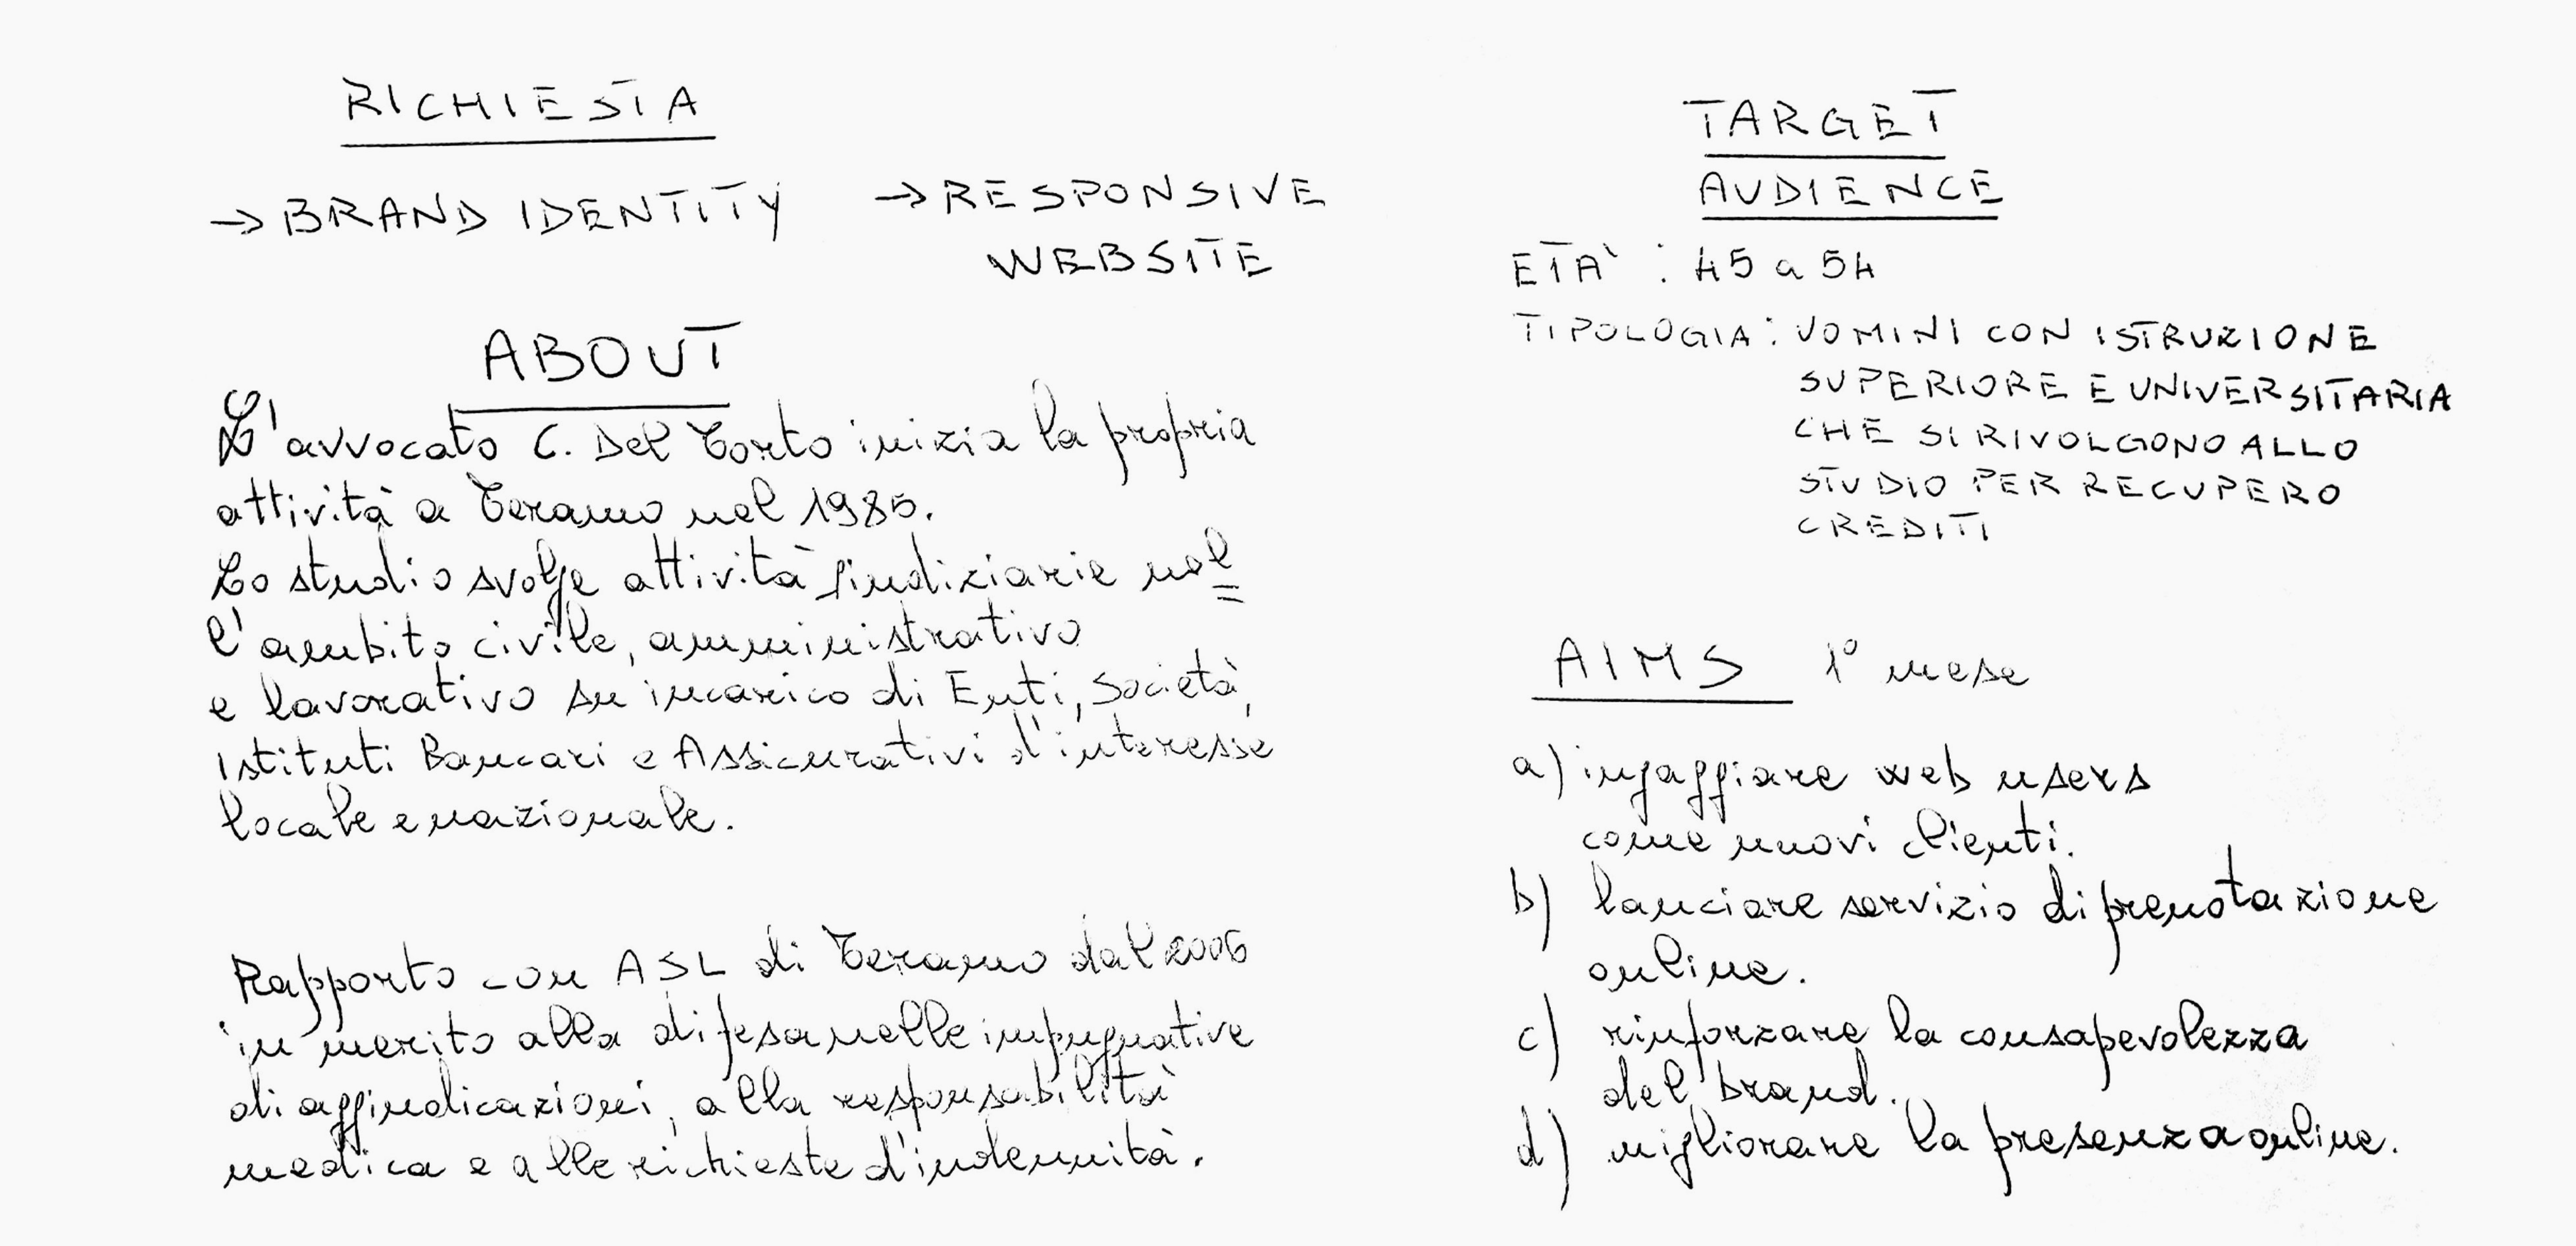 RICHIESTA
→ BRAND IDENTITY → RESPONSIVE
WEBSITE
ABOUT
L'avvocato C. Del Torto inizia la propria
attività a Teramo nel 1985.
Lo studio svolge attività giudiziarie nel=
l'ambito civile, amministrativo
e lavorativo su incarico di Enti, Società,
Istituti Bancari e Assicurativi d'interesse
locale e nazionale.
Rapporto con ASL di Teramo dal 2006
in merito alla difesa nelle impugnative
di aggiudicazioni, alla responsabilità
medica e alle richieste d'indennità.
TARGET
AUDIENCE
ETA' : 45 a 54
TIPOLOGIA: UOMINI CON ISTRUZIONE
SUPERIORE E UNIVERSITARIA
CHE SI RIVOLGONO ALLO
STUDIO PER RECUPERO
CREDITI
AIMS 1° mese
a) ingaggiare web users
come nuovi clienti.
b) lanciare servizio di prenotazione
online.
c) rinforzare la consapevolezza
del brand.
d) migliorare la presenza online.